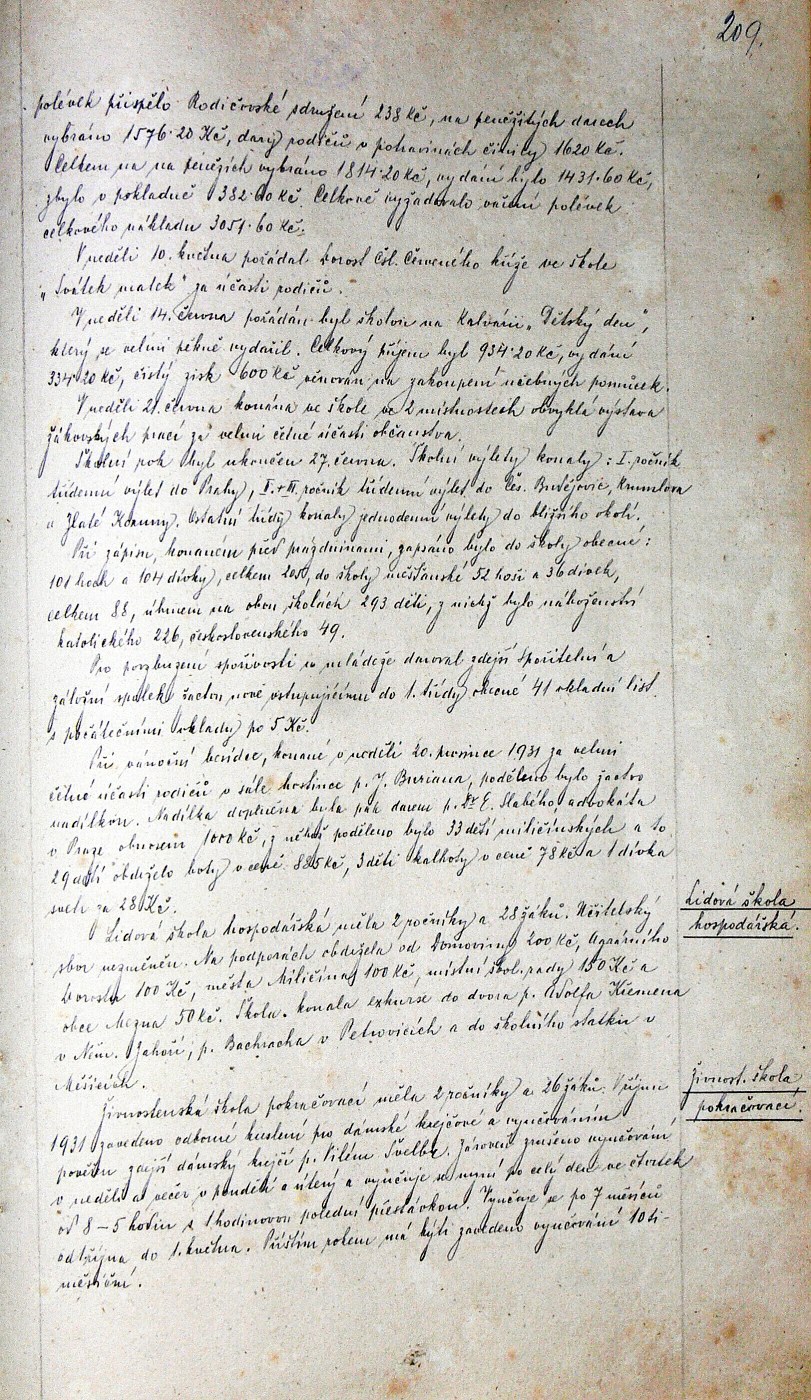 209.
polévek přispělo Rodičovské sdružení 238 Kč, na peněžitých darech
vybráno 1576·20 Kč, dary rodičů v potravinách činily 1620 Kč.
Celkem na na penězích vybráno 1814·20 Kč, vydání bylo 1431·60 Kč,
zbylo v pokladně 382·60 Kč. Celkově vyžadovalo vaření polévek
celkového nákladu 3051·60 Kč.
V neděli 10. května pořádal Dorost Čsl. Červeného kříže ve škole
„Svátek matek" za účasti rodičů.
V neděli 14. června pořádán byl školou na Kalvarii „Dětský den",
který se velmi pěkně vydařil. Celkový příjem byl 934·20 Kč, vydání
334·20 Kč, čistý zisk 600 Kč věnován na zakoupení učebných pomůcek.
V neděli 21. června konána ve škole ve 2 místnostech obvyklá výstava
žákovských prací za velmi četné účasti občanstva.
Školní rok byl ukončen 27. června. Školní výlety konaly: I. ročník
třídenní výlet do Prahy, II. + III. ročník třídenní výlet do Čes. Budějovic, Krumlova
a Zlaté Koruny. Ostatní třídy konaly jednodenní výlety do bližšího okolí.
Při zápisu, konaném před prázdninami, zapsáno bylo do školy obecné:
101 hoch a 104 dívky, celkem 205, do školy měšťanské 52 hoši a 36 dívek,
celkem 88, úhrnem na obou školách 293 děti, z nichž bylo náboženství
katolického 226, československého 49.
Pro povzbuzení spořivosti u mládeže daroval zdejší Spořitelní a
záložní spolek žactvu nově vstupujícímu do 1. třídy obecné 41 vkladní list
s počátečními vklady po 5 Kč.
Při vánoční besídce, konané v neděli 20. prosince 1931 za velmi
četné účasti rodičů v sále hostince p. J. Buriana, poděleno bylo žactvo
nadílkou. Nadílka doplněna byla pak darem p. Dr E. Slabého, advokáta
v Praze obnosem 1000 Kč, z něhož poděleno bylo 33 dětí miličínských a to
29 dětí obdrželo boty v ceně 885 Kč, 3 děti kalhoty v ceně 78 Kč a 1 dívka
svetr za 28 Kč.
Lidová škola
hospodářská.
Lidová škola hospodářská měla 2 ročníky a 28 žáků. Učitelský
sbor nezměněn. Na podporách obdržela od Domoviny 200 Kč, Agrárního
Dorostu 100 Kč, města Miličína 100 Kč, místní škol. rady 150 Kč a
obce Mezna 50 Kč. Škola konala exkurse do dvora p. Adolfa Křemena
v Něm. Zahoří, p. Bachracha v Petrovicích a do školního statku v
Měšicích.
Živnost. škola
pokračovací.
Živnostenská škola pokračovací měla 2 ročníky a 26 žáků. V říjnu
1931 zavedeno odborné kreslení pro dámské krejčové a vyučováním
pověřen zdejší dámský krejčí p. Vilém Švelbe. Zároveň zrušeno vyučování
v neděli a večer v pondělí a úterý a vyučuje se nyní po celý den ve čtvrtek
od 8 – 5 hodin s 1 hodinovou polední přestávkou. Vyučuje se po 7 měsíců
od října do 1. května. Příštím rokem má býti zavedeno vyučování 10 ti-
měsíční.